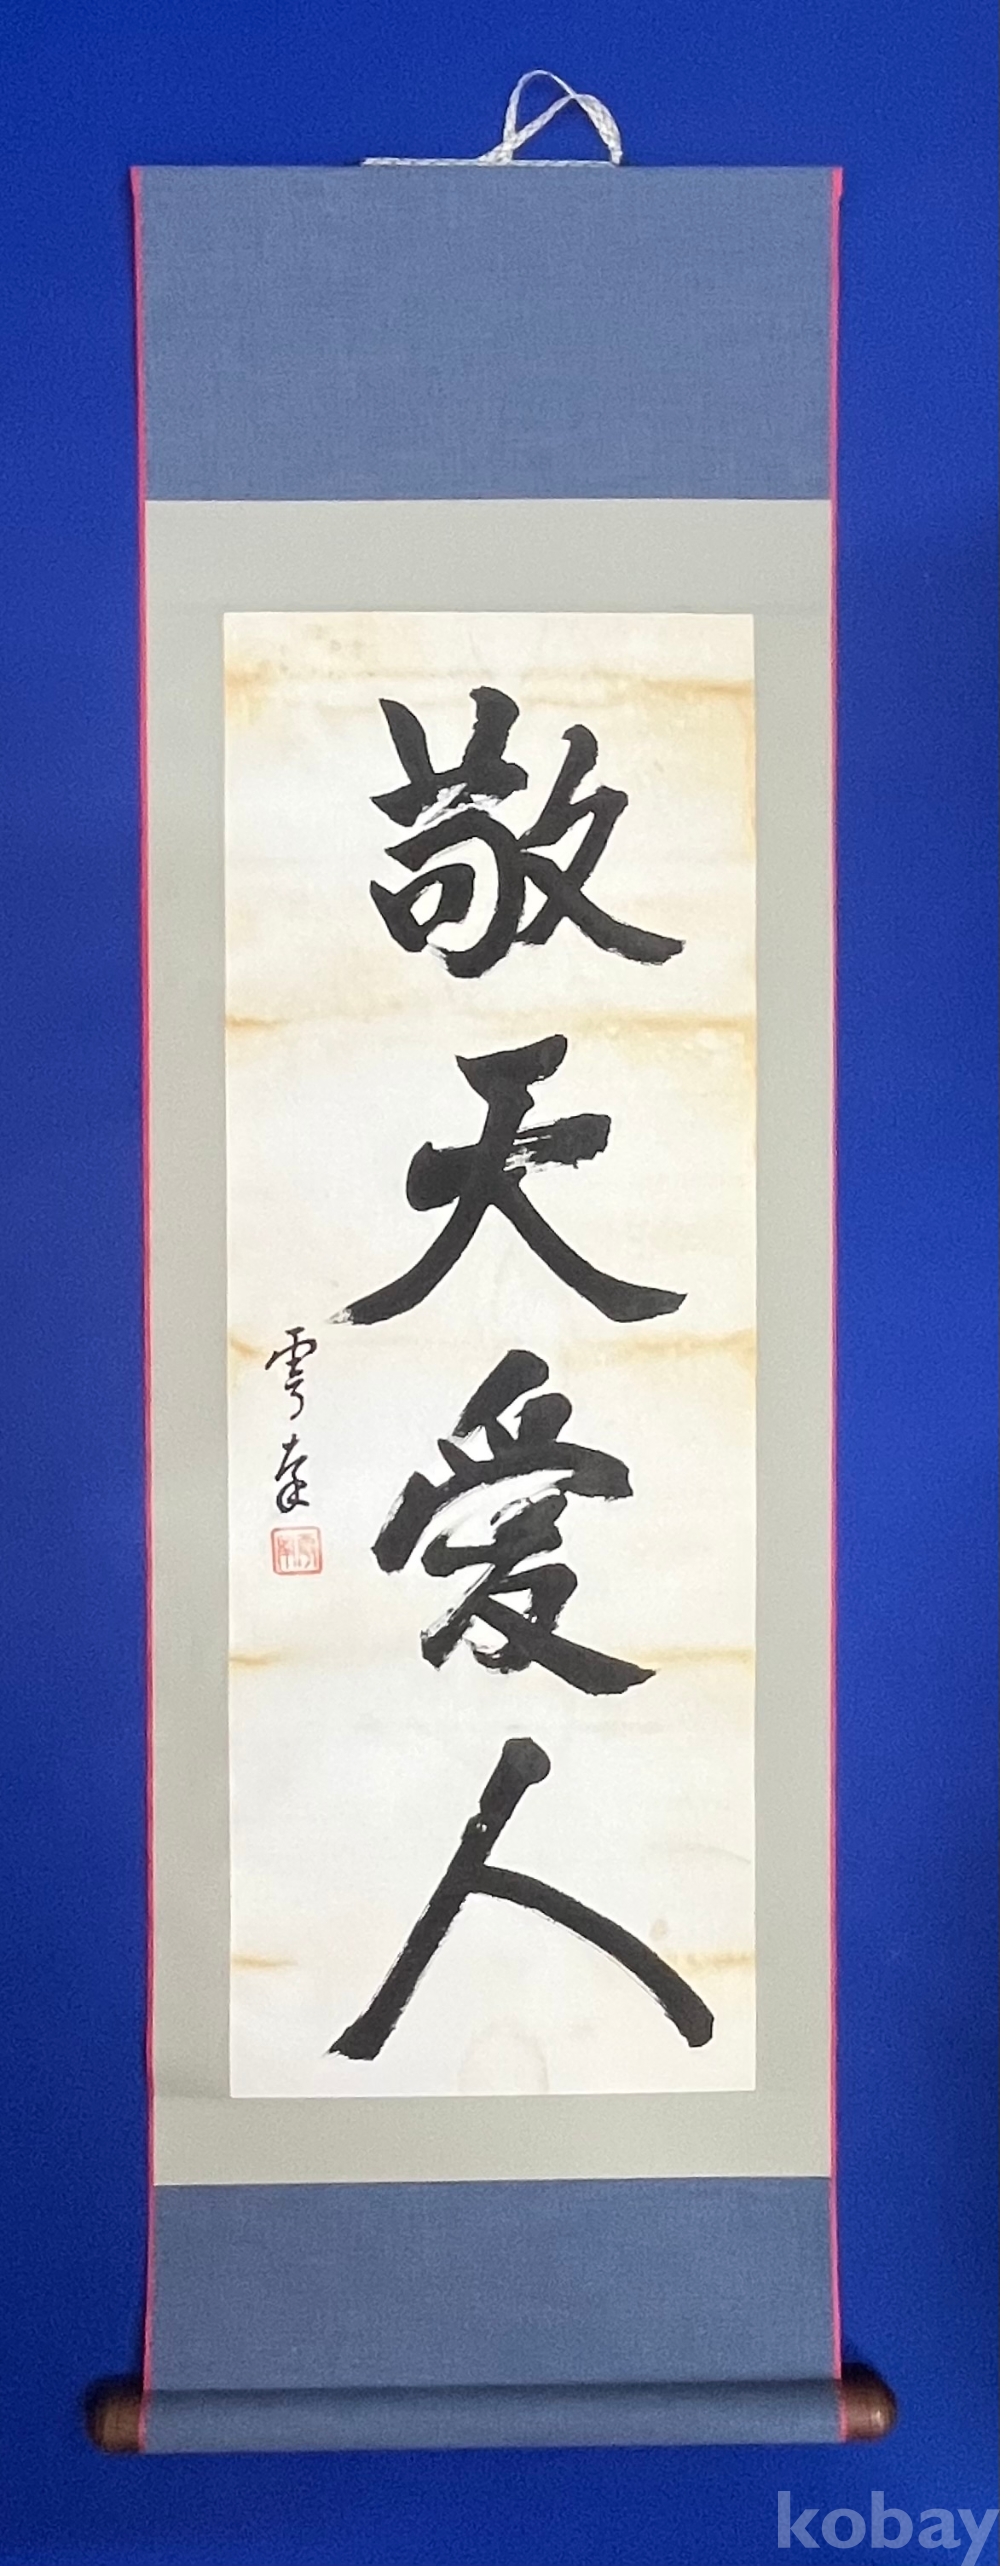 敬天愛人
kobay